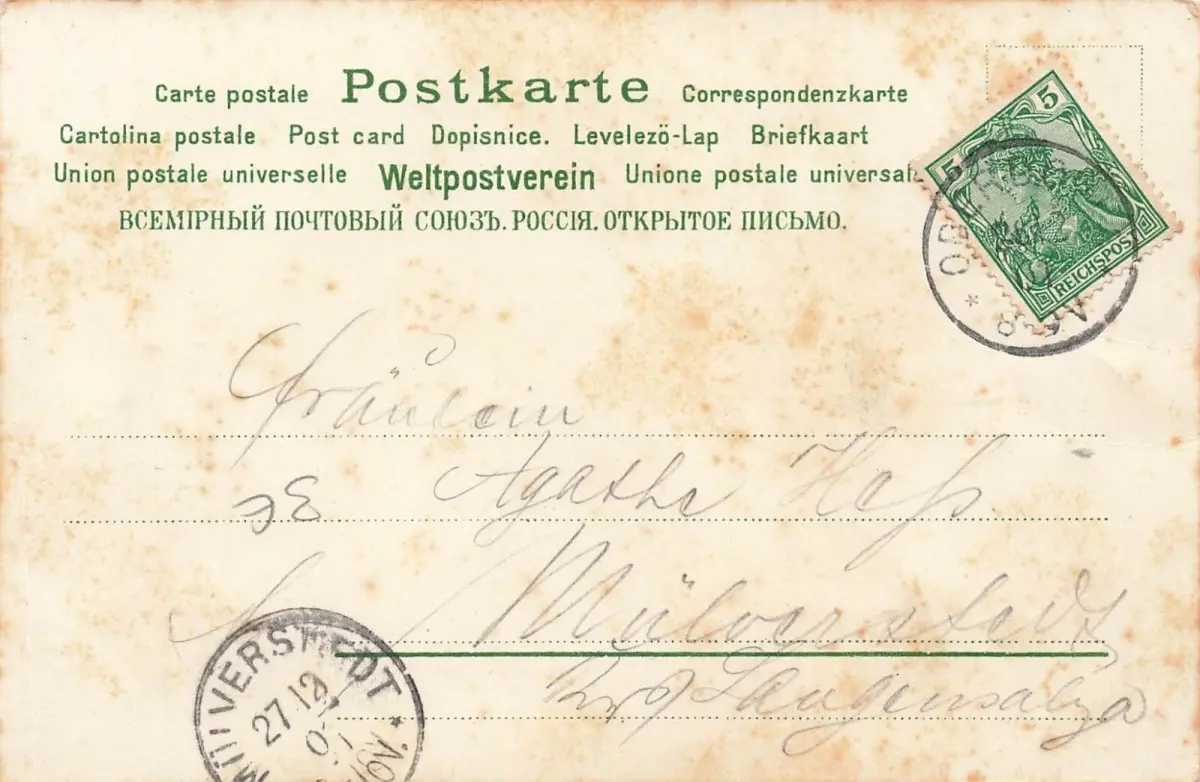 Carte postale Postkarte Correspondenzkarte
Cartolina postale Post card Dopisnice. Levelezö-Lap Briefkaart
Union postale universelle Weltpostverein Unione postale universale
ВСЕМІРНЫЙ ПОЧТОВЫЙ СОЮЗЪ. РОССІЯ. ОТКРЫТОЕ ПИСЬМО.
5 5
REICHSPOST
8-9V
Fräulein
Agathe Heß
Mülverstedt
Krs Langensalza
MÜLVERSTEDT
27 12